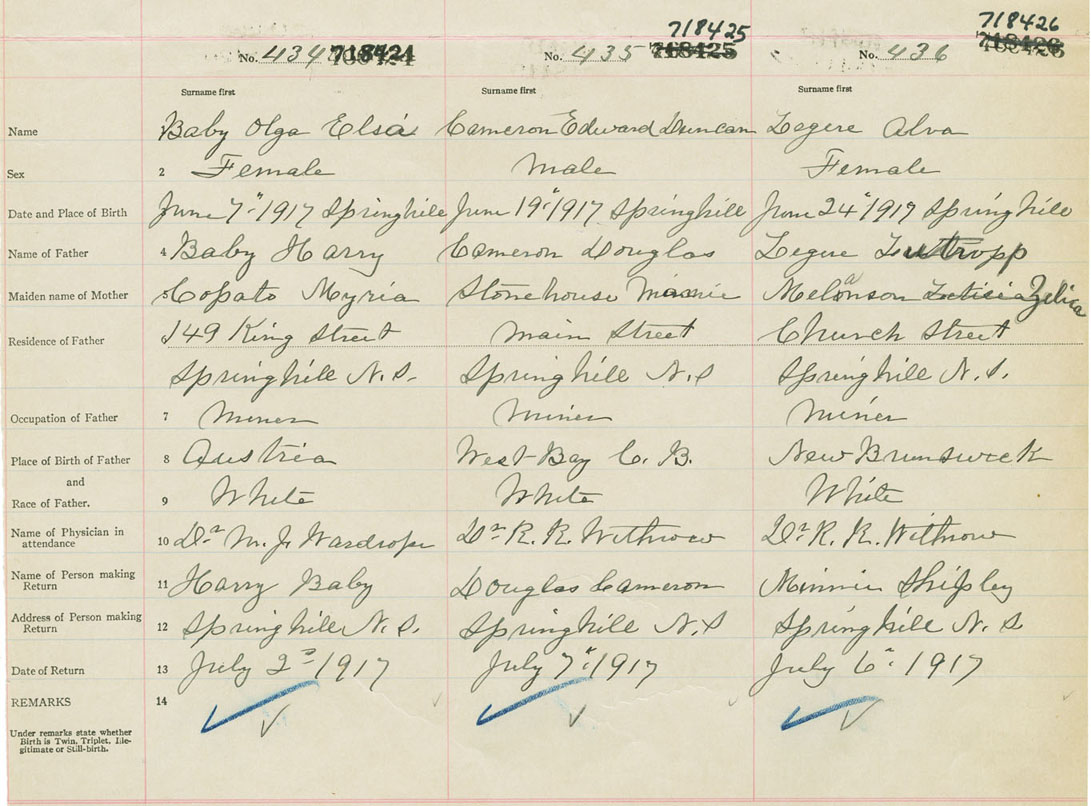 718425 718426
No. 434 718424 No. 435 718425 No. 436 718426
Surname first Surname first Surname first
Name Baby Olga Elsa Cameron Edward Duncan Legere Alva
Sex 2 Female Male Female
Date and Place of Birth June 7" 1917 Springhill June 19" 1917 Springhill June 24" 1917 Springhill
Name of Father 4 Baby Harry Cameron Douglas Legere
Maiden name of Mother Copato Myria Stonehouse Minnie Melanson Zelica
Residence of Father 149 King Street Main Street Church Street
Springhill N.S. Springhill N.S Springhill N.S.
Occupation of Father 7 Miner Miner Miner
Place of Birth of Father 8 Austria West Bay C.B. New Brunswick
and
Race of Father. 9 White White White
Name of Physician in
attendance 10 Dr M. J. Wardrope Dr R. R. Withrow Dr R. R. Withrow
Name of Person making
Return 11 Harry Baby Douglas Cameron Minnie Shipley
Address of Person making
Return 12 Springhill N.S. Springhill N.S Springhill N.S
Date of Return 13 July 2nd 1917 July 7" 1917 July 6" 1917
REMARKS 14
Under remarks state whether
Birth is Twin, Triplet, Ille-
gitimate or Still-birth.